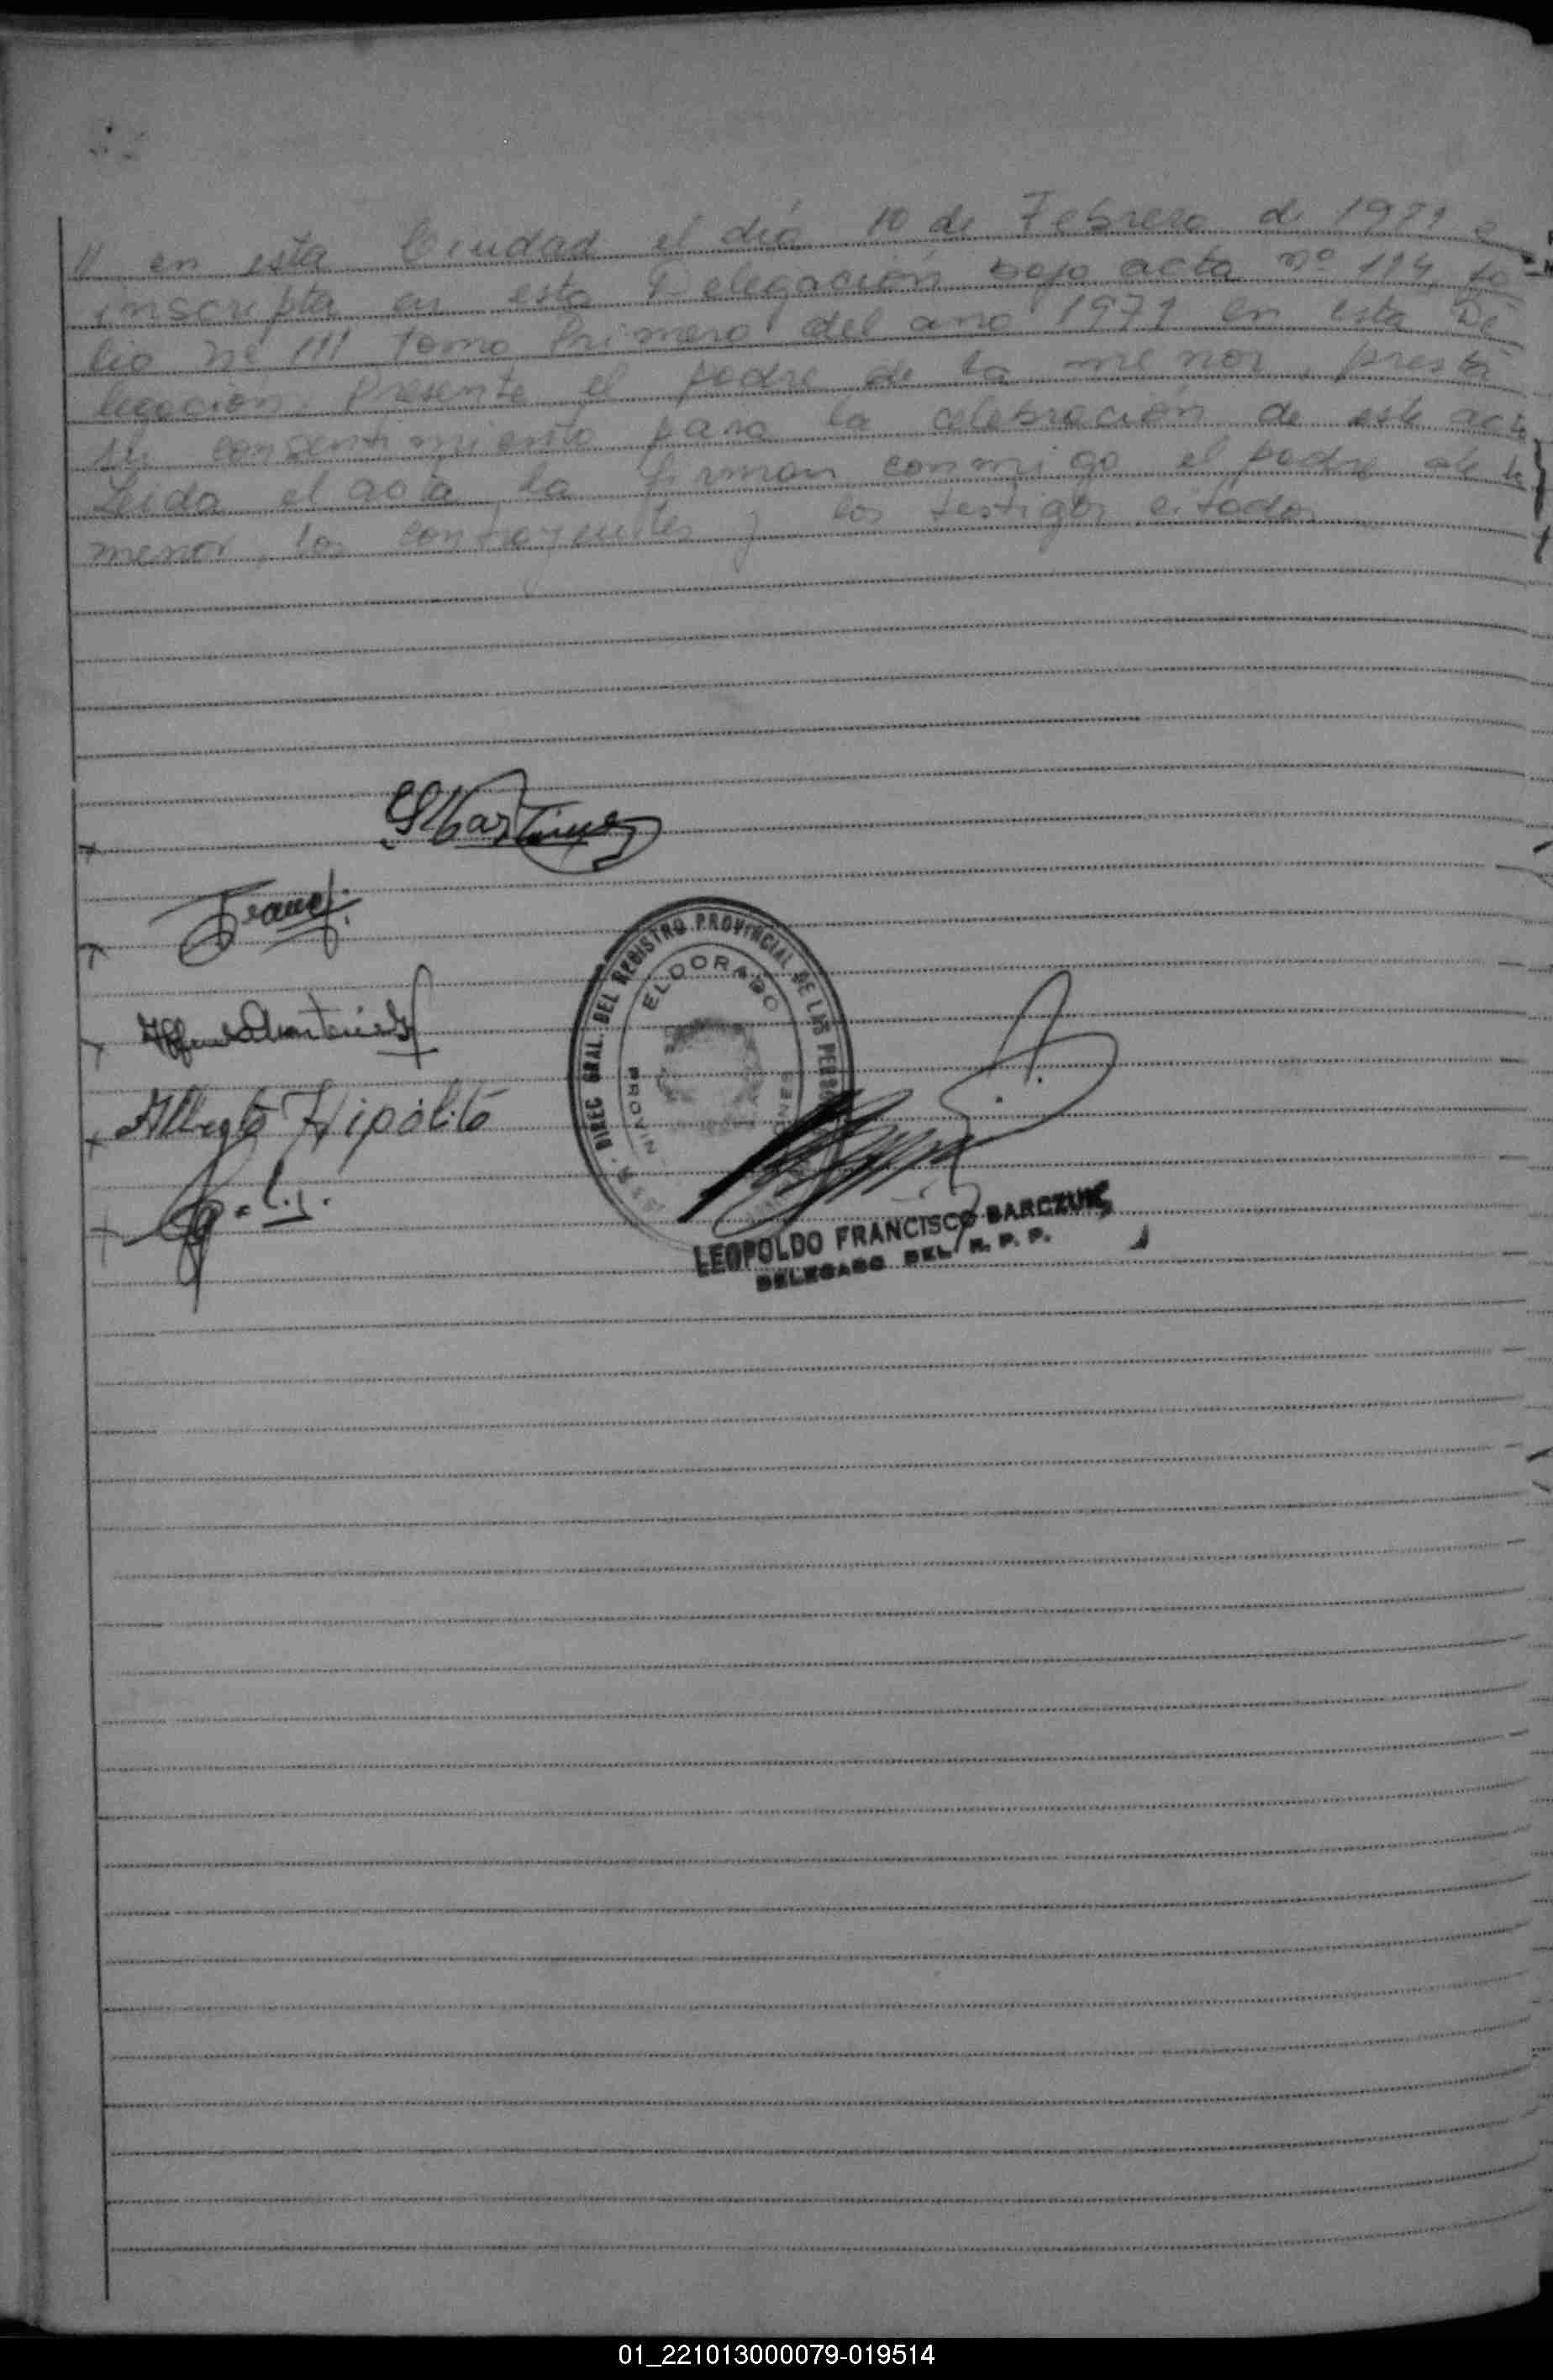 // en esta Ciudad el día 10 de Febrero de 1971 e
inscripta en esta Delegación bajo acta nº 114 fo
lio nº 111 tomo Primero del año 1971 en esta De
legación. Presente el padre de la menor, presta
su consentimiento para la celebración de este acto
Leida el acta la firman conmigo el padre de la
menor, los contrayentes y los testigos citados
Martinez
Alberto Hipólito
DIREC. GRAL. DEL REGISTRO PROVINCIAL DE LAS PERSO
ELDORADO
PROVIN
ONES
LEOPOLDO FRANCISCO BARCZUK
DELEGADO DEL R. P. P.
01_221013000079-019514